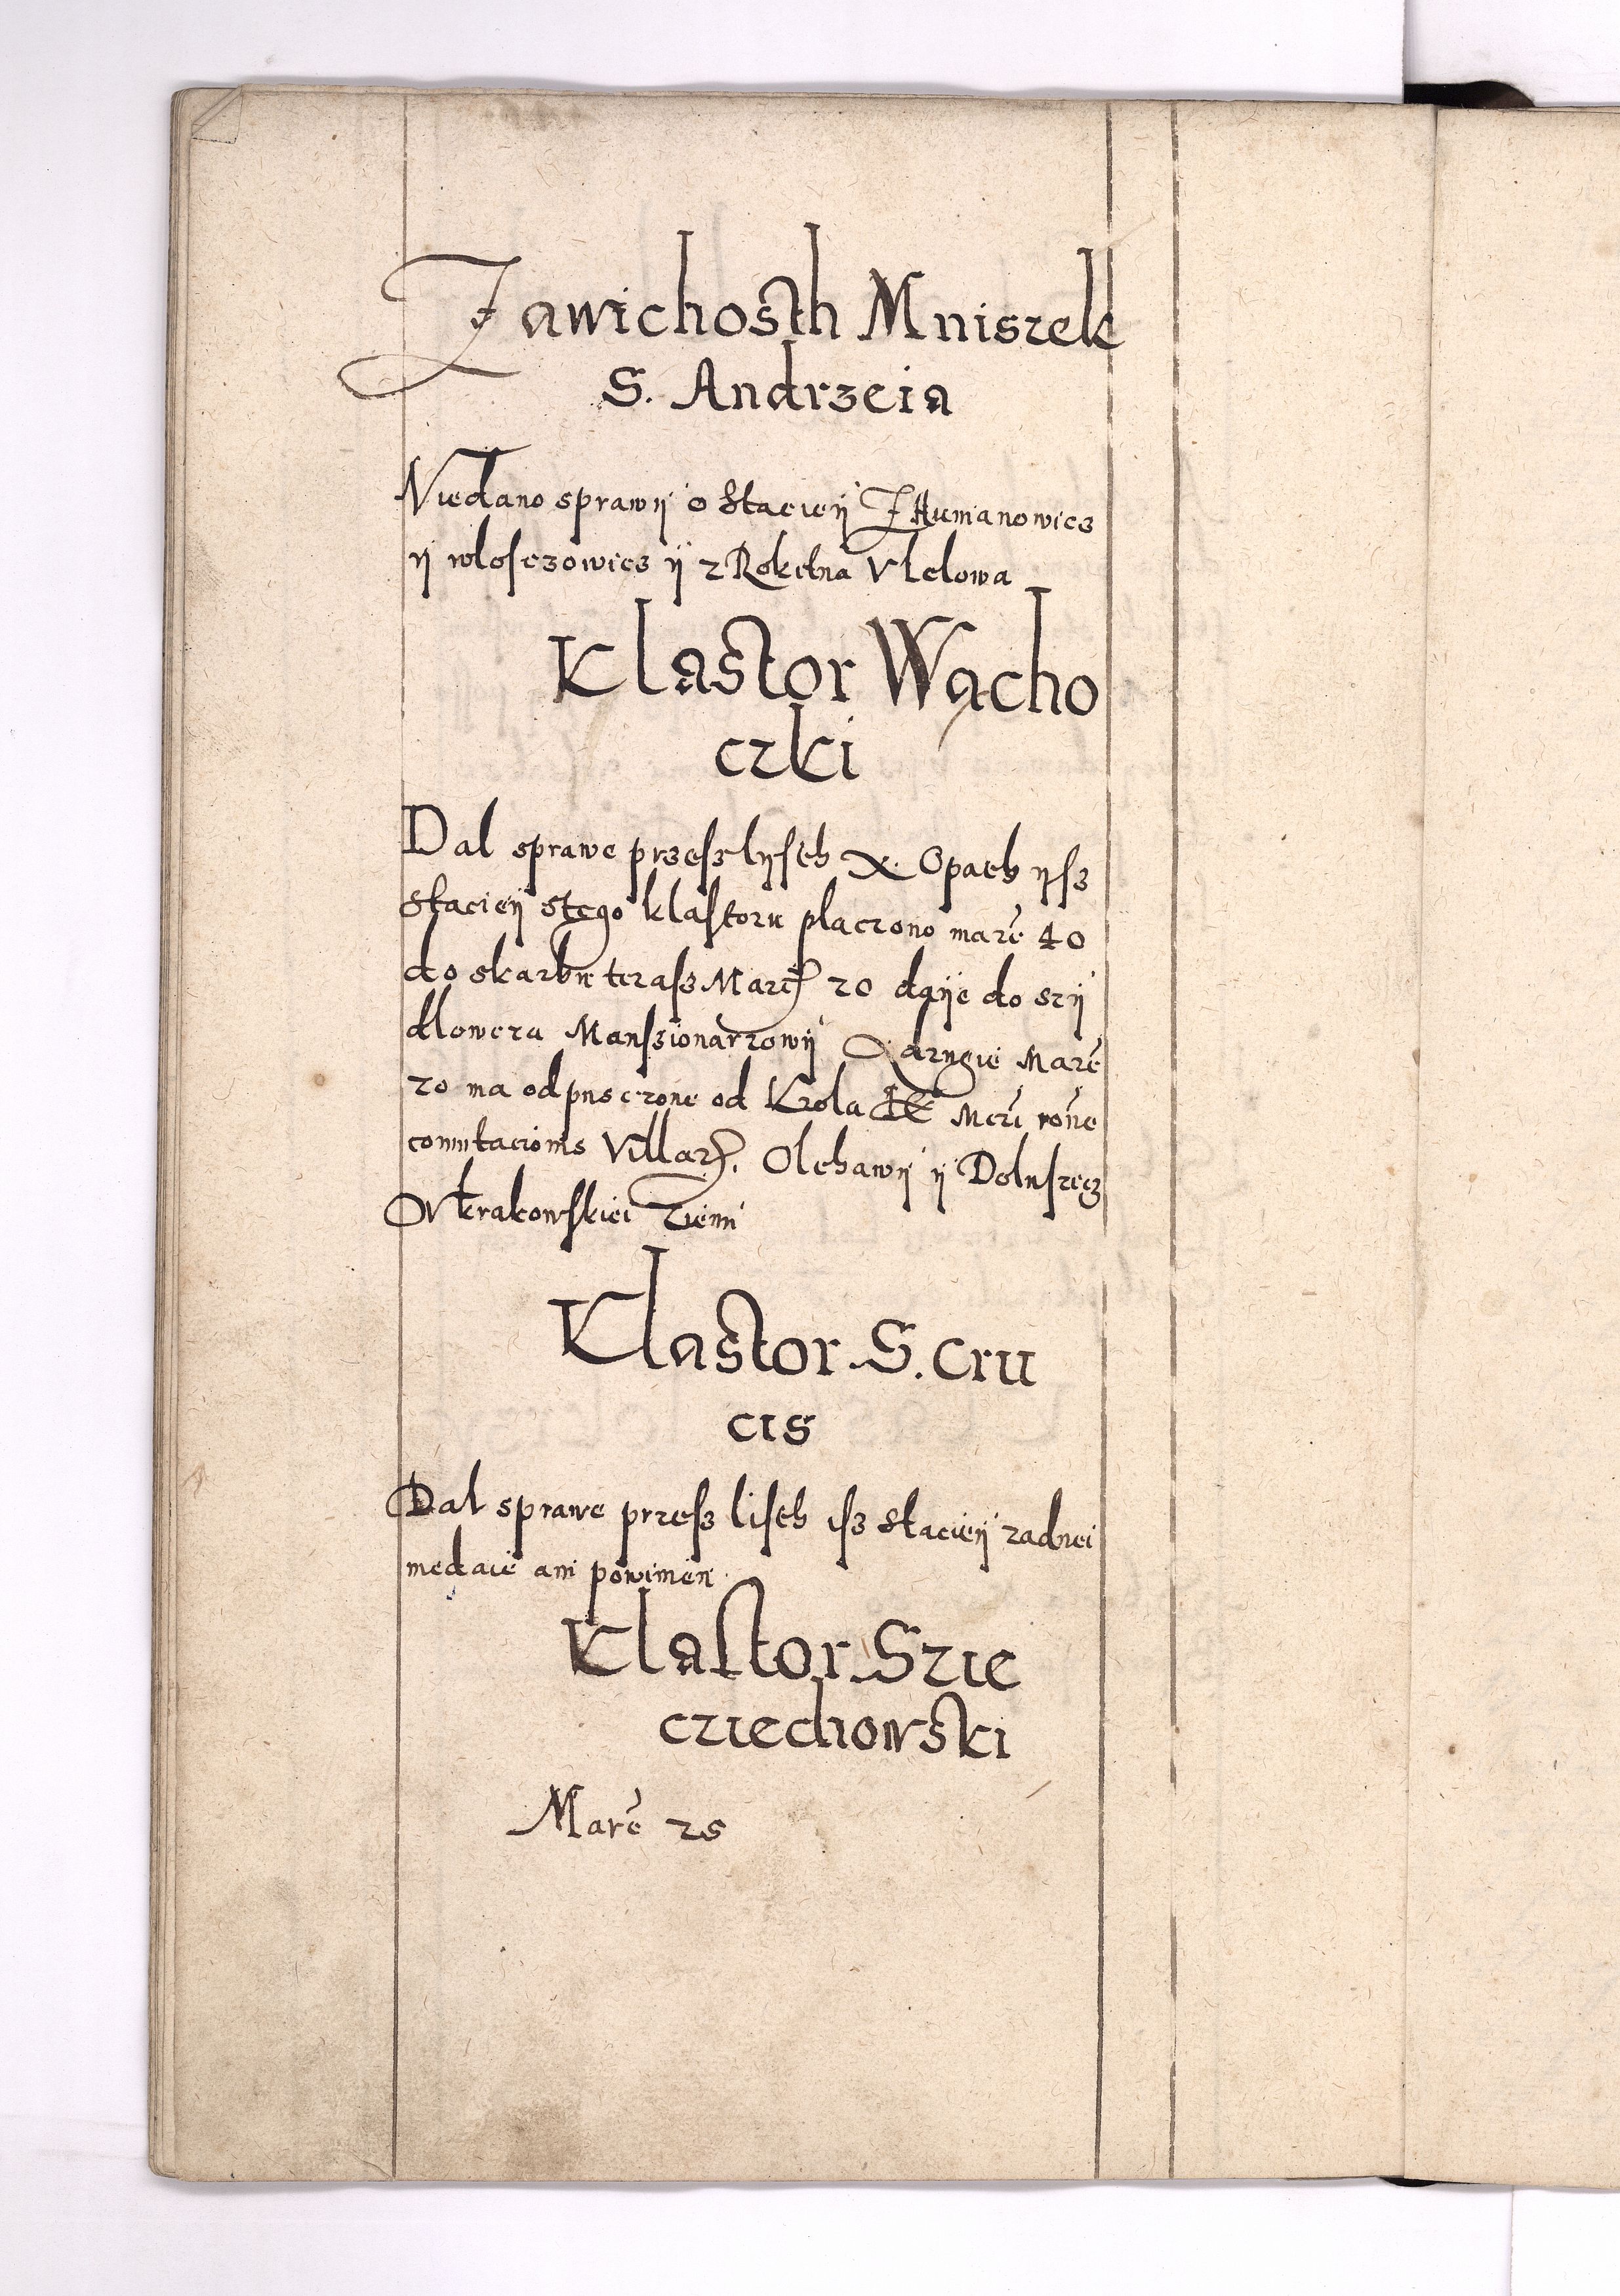 Zawichosth Mniszek
S. Andrzeia
Niedano sprawÿ o Stacieÿ Z Humanowicz
ÿ wloſczowicz ÿ z Rokitna V Lelowa
Klastor Wącho
czki
Dal sprawe przeſz lÿſth X. Opath ÿſz
Stacieÿ stego klaſtoru placzono marc 40
do skarbu teraſz Marc 20 dąÿe do szÿ
dlowcza Manſzionarzowÿ A drugie Marc
20 ma odpusczone od Krola Mci
comutacionis Villar. Olchawÿ ÿ
W krakowſkiei Ziemi
Klastor S. Cru
cis
Dal sprawe przeſz liſth iſz Stacieÿ zadnei
niedaie ani powinien
Klaſtor Szie
cziechowski
Marc 25